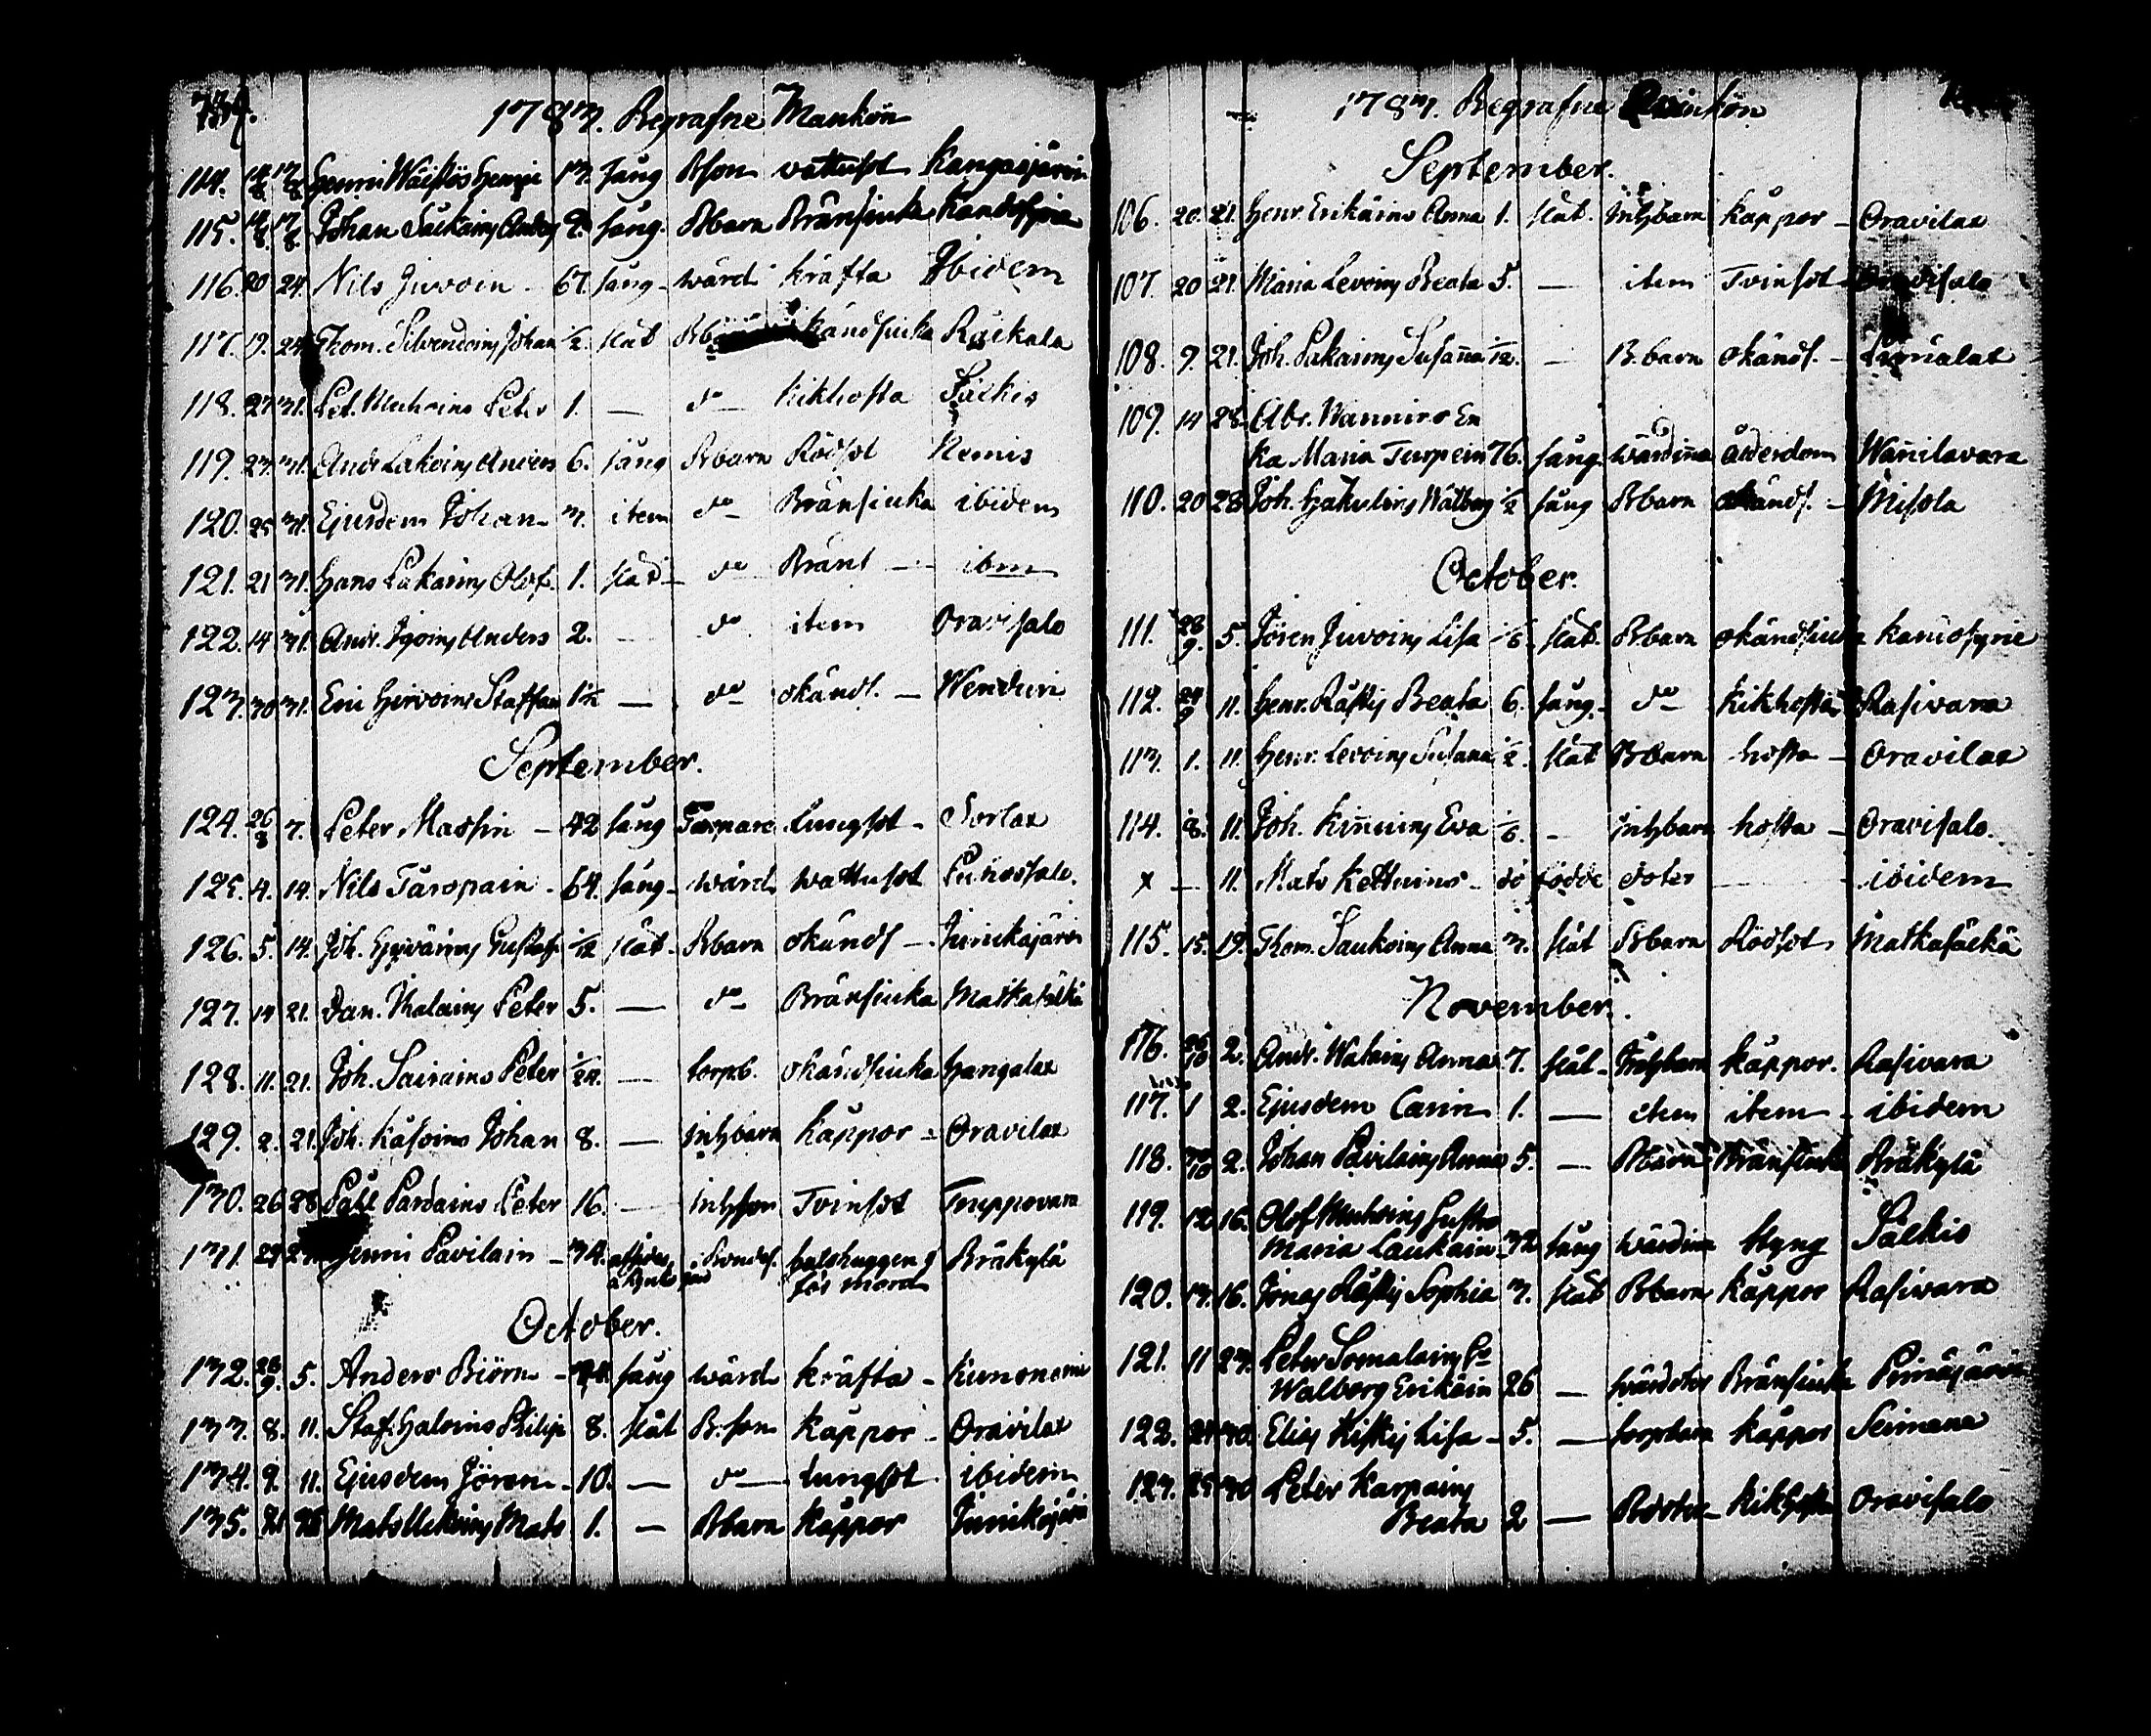 734.
1783. Begrafne Mankön
114. 14/8 17/8 Henri Wäistös Henric 13. sång Bson wattusot Kangasjärvi
115. 14/8 17/8 Johan Anders 2. sång. Bbarn Bränsiuka
116. 20 24. Nils Juvoin - 67. sång - wärd kräfta Ibidem
117. 19. 24. Thom. Silvendoins Johan 1/2. slät okändsiuka Räkkala
118. 27 31. Pet. Muhoins Peter 1. — do kikhosta Pälkis
119. 23. 31. Andr Lakoins Anders 6. sång Bbarn Rödsot Nemis
120. 25 31. Ejusdem Johan 3. item do Bränsiuka ibidem
121. 21 31. Hans Pakains Olof. 1. slät do Bränl — ibm
122. 14 31. Andr. Anders 2. — do item Oravisalo
123. 30 31. Eric Hirvoins Staffan — do okändt. —
September.
124. 26/8 7. Peter Massin - 42 sång Torpare Lungsot - Sorlax
125. 4. 14. Nils Taropain - 64. sång - wärd wattusot Puhossalo.
126. 5. 14. Joh. Gustaf 1/12 slät. Bbarn okändt — Junikajärvi
127. 14 21. Dan. Ihalains Peter 5. — do Bränsiuka Matkasälkä
128. 11. 21. Joh. Sairains Peter 1/24. — torpb. okändsiuka Hangalax
129. 2. 21. Joh. Kåsoins Johan 8. — inhbarn käppor - Oravilax
130. 26 28 Påll Pardains Peter 16. — inhson Tvinsot Truppovara
131. 29 Henni Pavilain - 34. Bondes. halshuggen Bräkylä
för mord
October.
132. 28/9. 5. Anders Biörn - sång wärd kräfta - Kumonemi
133. 8. 11. Staf. Halvoins Philip 8. slät B.son käppor - Oravilax
134. 9. 11. Ejusdem Jören - 10. — do lungsot ibidem
135. Mats Mats 1. — Bbarn käppor Junikajärvi
1783. Begrafne Qvinkön
September.
106. 20. 21. Henr. Erikäins Anna 1. slät. inhbarn käppor - Oravilax
107. 20 21. Maria Levoins Beata 5. — item Tvinsot Oravisalo
108. 9. 21. Joh. Pakains Susanna 1/12. — B.barn okändt. -
109. 14 28. Abr. Wannins En
ka Maria Turpein 76. sång. wärdinna ålderdom Wänilavara
110. 20 28 Joh. Hakulins Walborg 1/2 sång Bbarn okändt. - Misola
October.
111. 28/9. 5. Jören Juvoins Lisa 1/6. slät. Bbarn okändsiuka
112. 24/9 11. Henr. Räftis Beata 6. sång. do kikhosta Rasivara
113. 1. 11. Henr. Levoins Susana 1/2. slät Bbarn hosta - Oravilax
114. 8. 11. Joh. Kinnuins Eva 1/6. - inhbarn hosta - Oravisalo.
x — 11. Mats Kettuins - dödfödde doter — ibidem
115. 15. 19. Thom. Saukoins Anna 3. slät Bbarn Rödsot Matkasälkä
November.
116. 26/10 2. Andr. Watains Anna 7. slät - Inhbarn käppor. Rasivara
117. 1 2. Ejusdem Carin 1. — item item - ibidem
118. 30/10 2. Johan Pavilains Anna 5. — Bbarn Bränsiuka Bräkylä
119. 12 16. Olof Muhoins hustro
Maria Laukain - 32 sång wärdina styng Pälkis
120. 13. 16. Jonas Räftis Sophia 3. slät Bbarn käppor Rasivara
121. 11 23. Peter Somalains
Walborg Erikäin 26 — Bränsiuka
122. 30. Elias Kiskis Lisa - 5. — torpbarn käppor Seimana
123. 25 30 Peter Karpains
Beata 2 — kikhosta Oravisalo